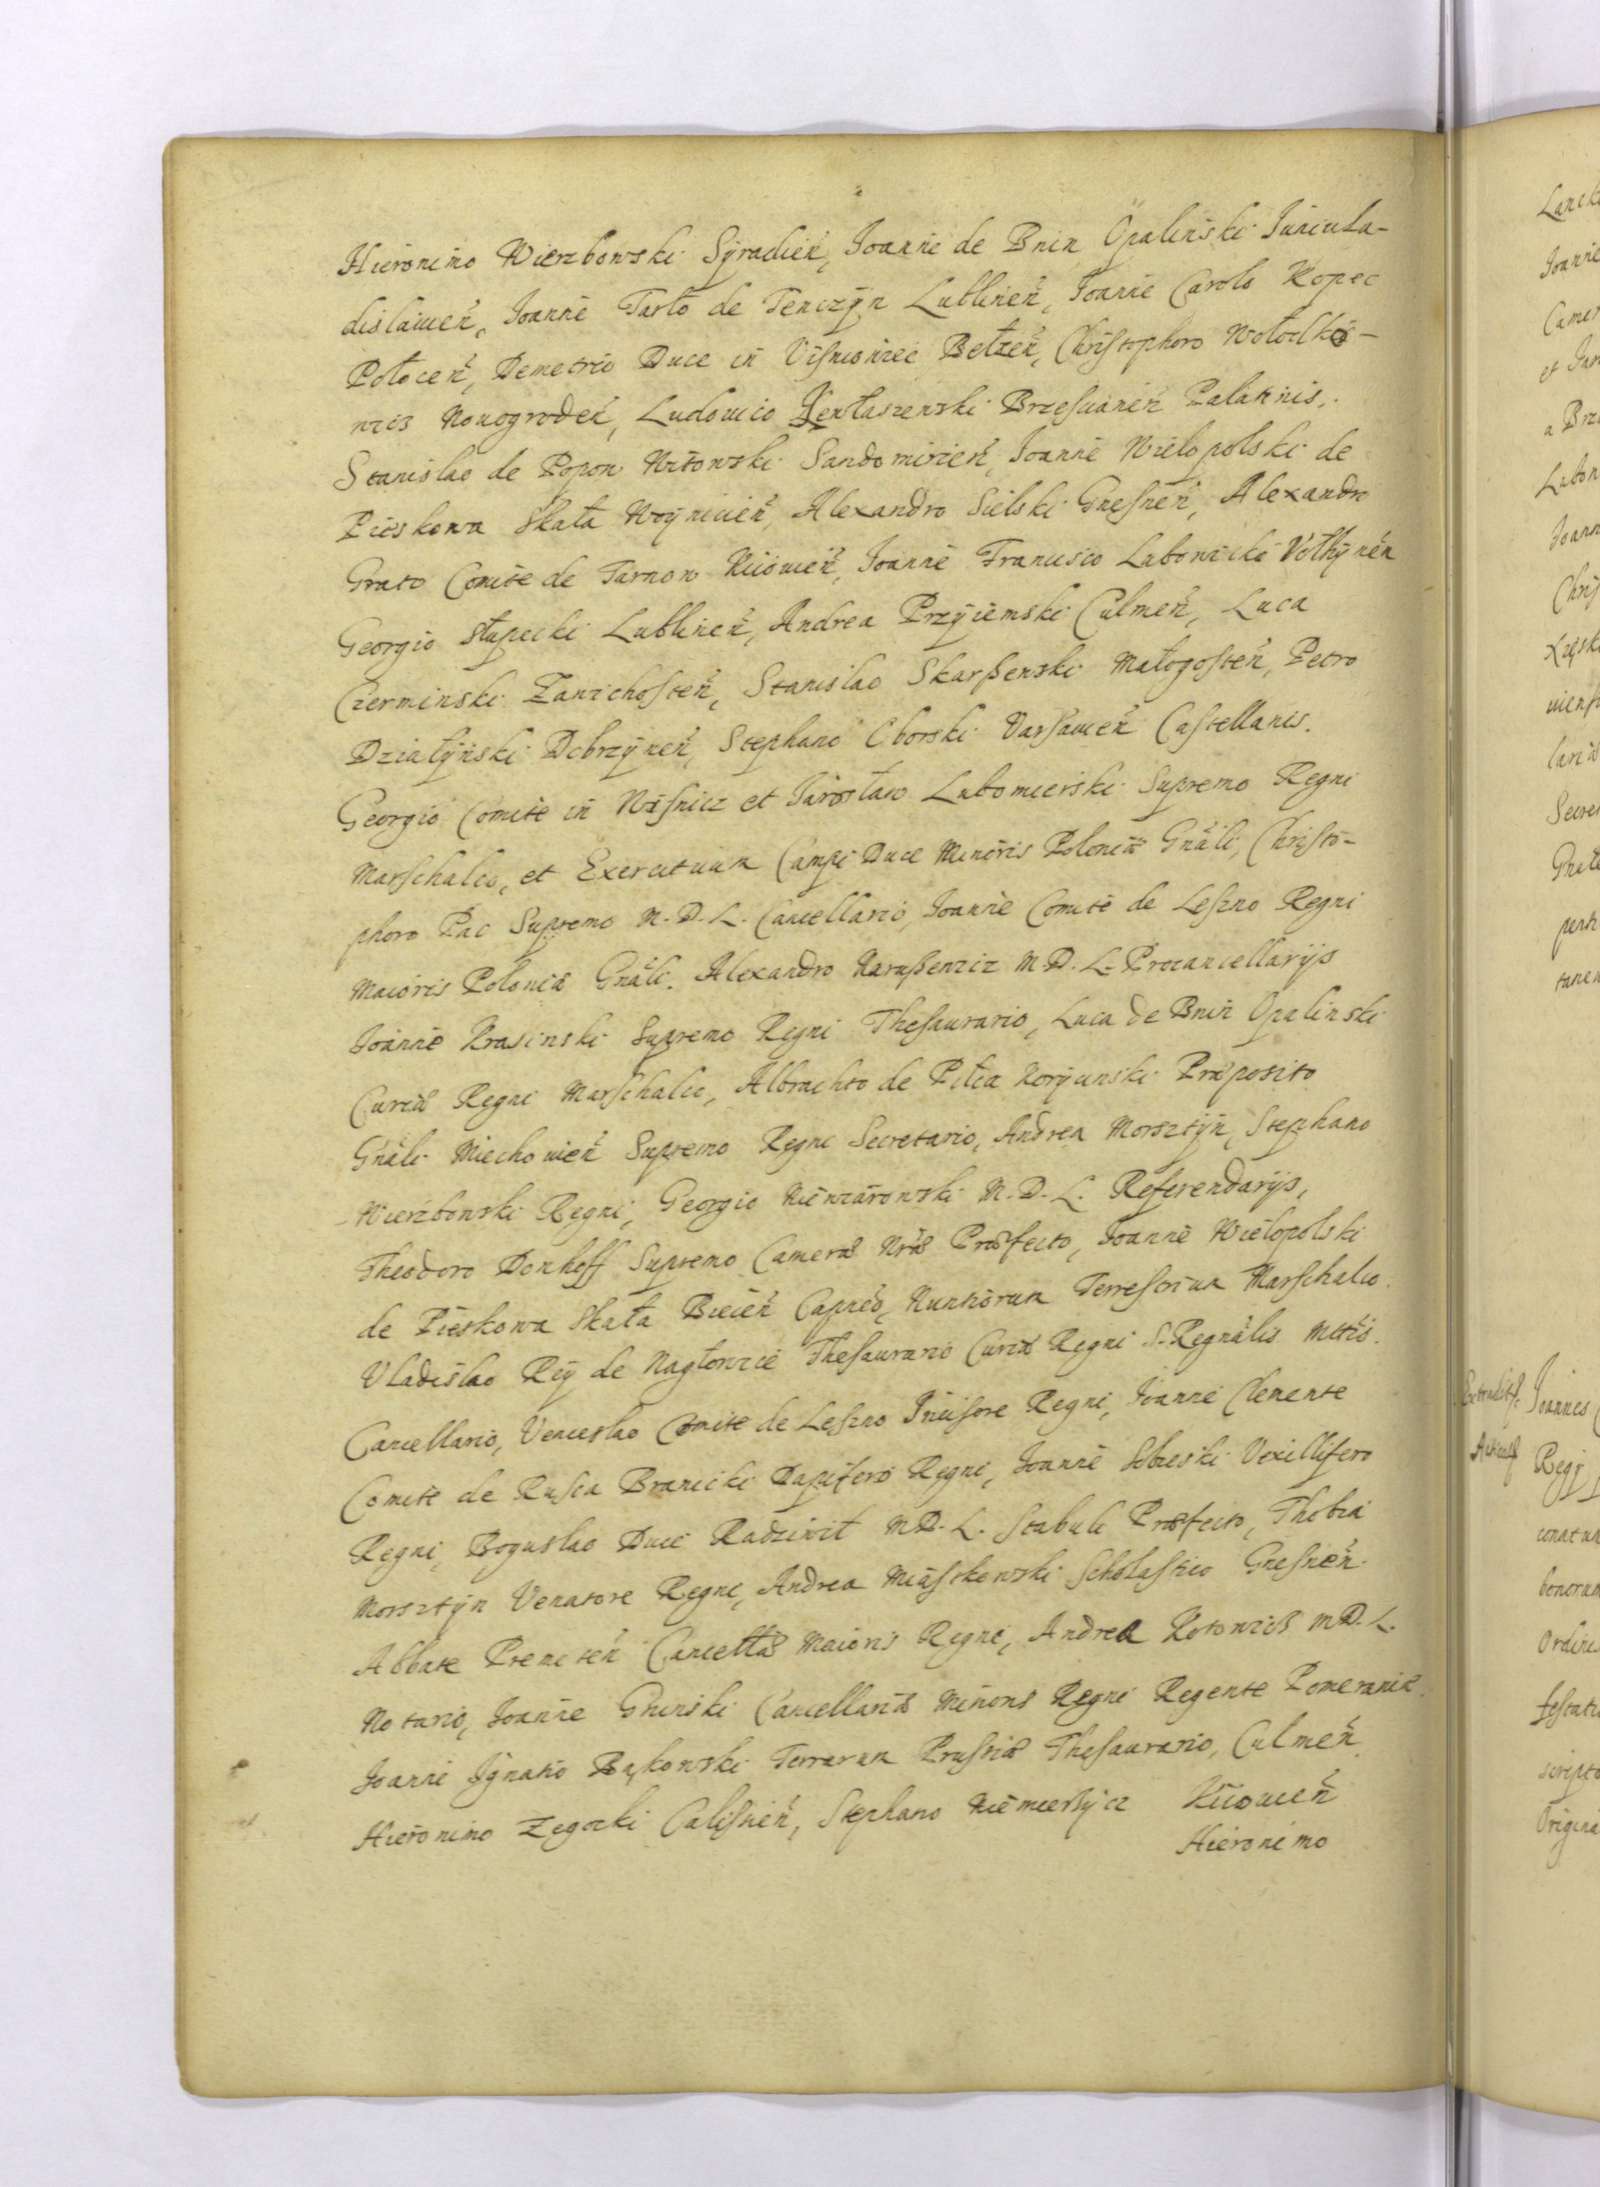 Hieronimo Wierzbowski Syradień, Joanne de Bnin Opalinski Juniula-
dislauień, Joanne Tarło de Tenczyn Lublineń, Joanne Carolo Kopec
Połoceń, Demetrio Duce in Visniowiec Bełzeń, Christophoro Wołodko-
wicz Nouogrodeń, Ludouico Wenłaszewski Brzesuianeń Palatinis.
Stanislao de Popow Witowski Sandomirień, Joanne Wielopolski de
Pieskowa Skała Woynicień, Alexandro Sielski Gnesneń, Alexandro
Grato Comite de Tarnow Kiiouień, Joanne Francisco Lubowicki Vołhyneń
Georgio Słupecki Lublineń, Andrea Przyiemski Culmeń, Luca
Czerminski Zawichosteń, Stanislao Skarszewski Małogosteń, Petro
Działyński Dobrzyneń, Stephano Oborski Varsauień Castellanis.
Georgio Comite in Wisnicz et Jarosław Lubomierski Supremo Regni
Marschalco, et Exercituum Campi Duce Minoris Poloniæ Gnäli, Christo-
phoro Pac Supremo M. D. L. Cancellario, Joanne Comite de Leszno Regni
Maioris Poloniæ Gnäli. Alexandro Naruszewicz M D. L. Procancellarijs
Joanne Krasinski Supremo Regni Thesaurario, Luca de Bnin Opalinski
Curiæ Regni Marschalco, Albrachto de Pilca Koryunski Præposito
Gnäli Miechouień Supremo Regni Secretario, Andrea Morsztyn, Stephano
Wierzbowski Regni, Georgio Niewiarowski M. D. L. Referendarijs,
Theodoro Donhoff Supremo Cameræ Nræ Præfecto, Joanne Wielopolski
de Pieskowa Skała Biecień Capneo, Nuntiorum Terrestrium Marschalco.
Vladislao Rey de Nagłowice Thesaurario Curiæ Regni S. Regnälis Mttis.
Cancellario, Venceslao Comite de Leszno Incisore Regni, Joanne Clemente
Comite de Rusca Branicki Dapifero Regni, Joanne Sobieski Vexillifero
Regni, Boguslao Duce Radziwił M D. L. Stabuli Præfecto, Thobia
Morsztyn Venatore Regni, Andrea Miaskowski Scholastico Gnesneń
Abbate Premeteń Cancellæ Maioris Regni, Andrea Kotowicz M D. L.
Notario, Joanne Gninski Cancellariæ Minoris Regni Regente Pomeraniæ.
Joanne Ignatio Bąkowski Terrarum Prussiæ Thesaurario, Culmeń
Hieronimo Zegocki Calisień, Stephano Niemierzycz Kiiouień
Hieronimo